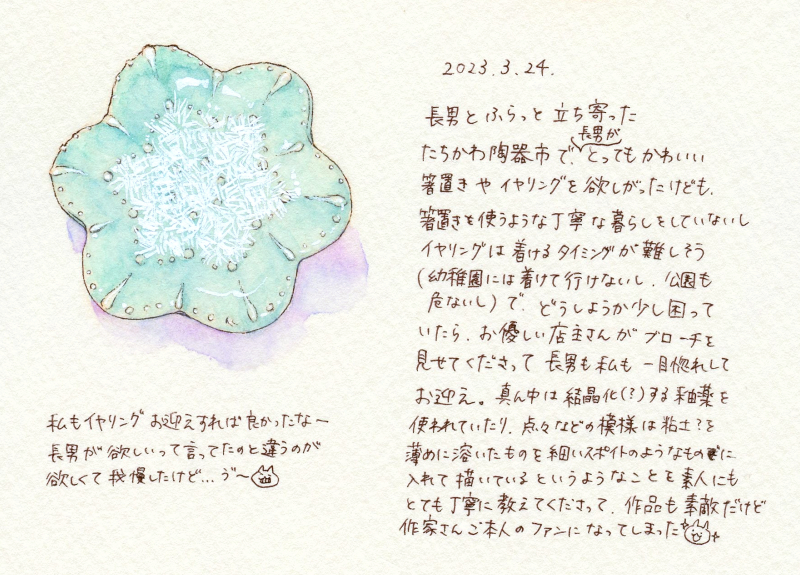 2023.3.24.
長男とふらっと立ち寄った
たちかわ陶器市で、長男がとってもかわいい
箸置きやイヤリングを欲しがったけども、
箸置きを使うような丁寧な暮らしをしていないし
イヤリングは着けるタイミングが難しそう
(幼稚園には着けて行けないし、公園も
危ないし)で、どうしようか少し困って
いたら、お優しい店主さんがブローチを
見せてくださって長男も私も一目惚れして
お迎え。真ん中は結晶化(?)する釉薬を
使われていたり、点々などの模様は粘土?を
薄めに溶いたものを細いスポイトのようなものに
入れて描いているというようなことを素人にも
とても丁寧に教えてくださって、作品も素敵だけど
作家さんご本人のファンになってしまった
私もイヤリングお迎えすれば良かったなー
長男が欲しいって言ってたのと違うのが
欲しくて我慢したけど…ゔ〜